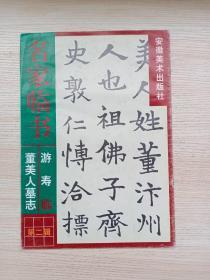 安徽美术出版社
名家临书
游寿 临
董美人墓志
第二辑
美人姓董汴州
人也祖佛子齊
史敦仁愽洽摽